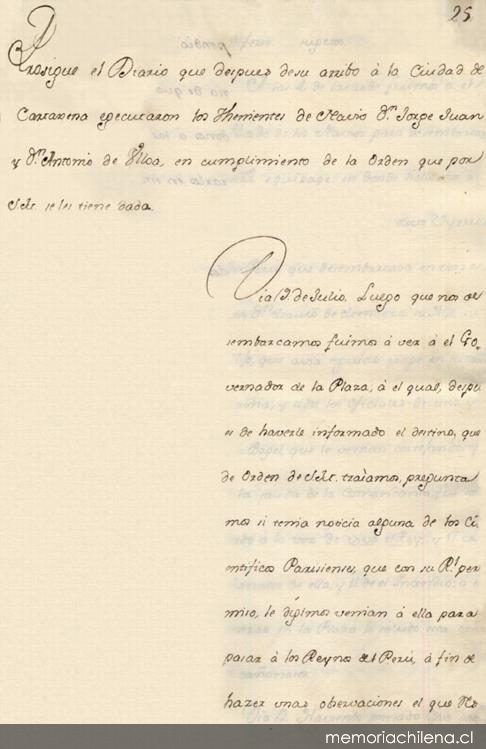 25
Prosigue el Diario que despues de su arribo à la Ciudad de
Cartaxena egecutaron los Thenientes de Navio Dn. Jorge Juan
y Dn. Antonio de Ulloa, en cumplimiento de la Orden que por
S.M. se les tiene dada.
Dia 9. de Julio. Luego que nos de
sembarcamos fuimos à ver à el Go-
vernador de la Plaza, à el qual, despu
es de haverle informado el destino, que
de Orden de S.M. traìamos, pregunta
mos si tenia noticia alguna de los Ci
entificos Parisienses, que con su Rl. per
miso, le digimos venian à ella para
pasar à los Reynos del Perú, à fin de
hazer unas observaciones el que No
memoriachilena.cl